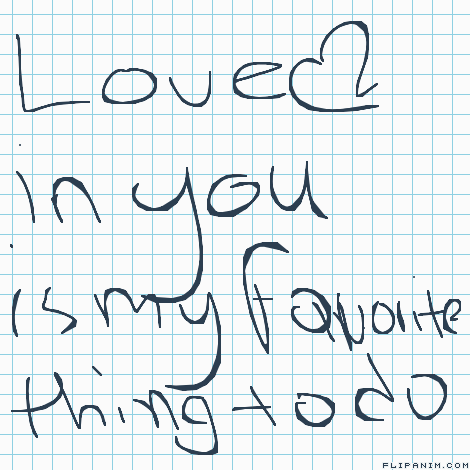 Love
in you
is my favorite
thing to do
FLIPANIM.COM